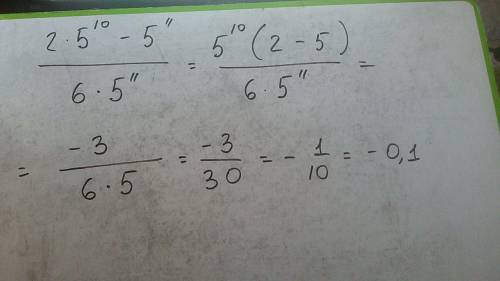 (2·5¹⁰ - 5¹¹)/(6·5¹¹) = 5¹⁰(2 - 5)/(6·5¹¹) =
= -3/(6·5) = -3/30 = -1/10 = -0,1